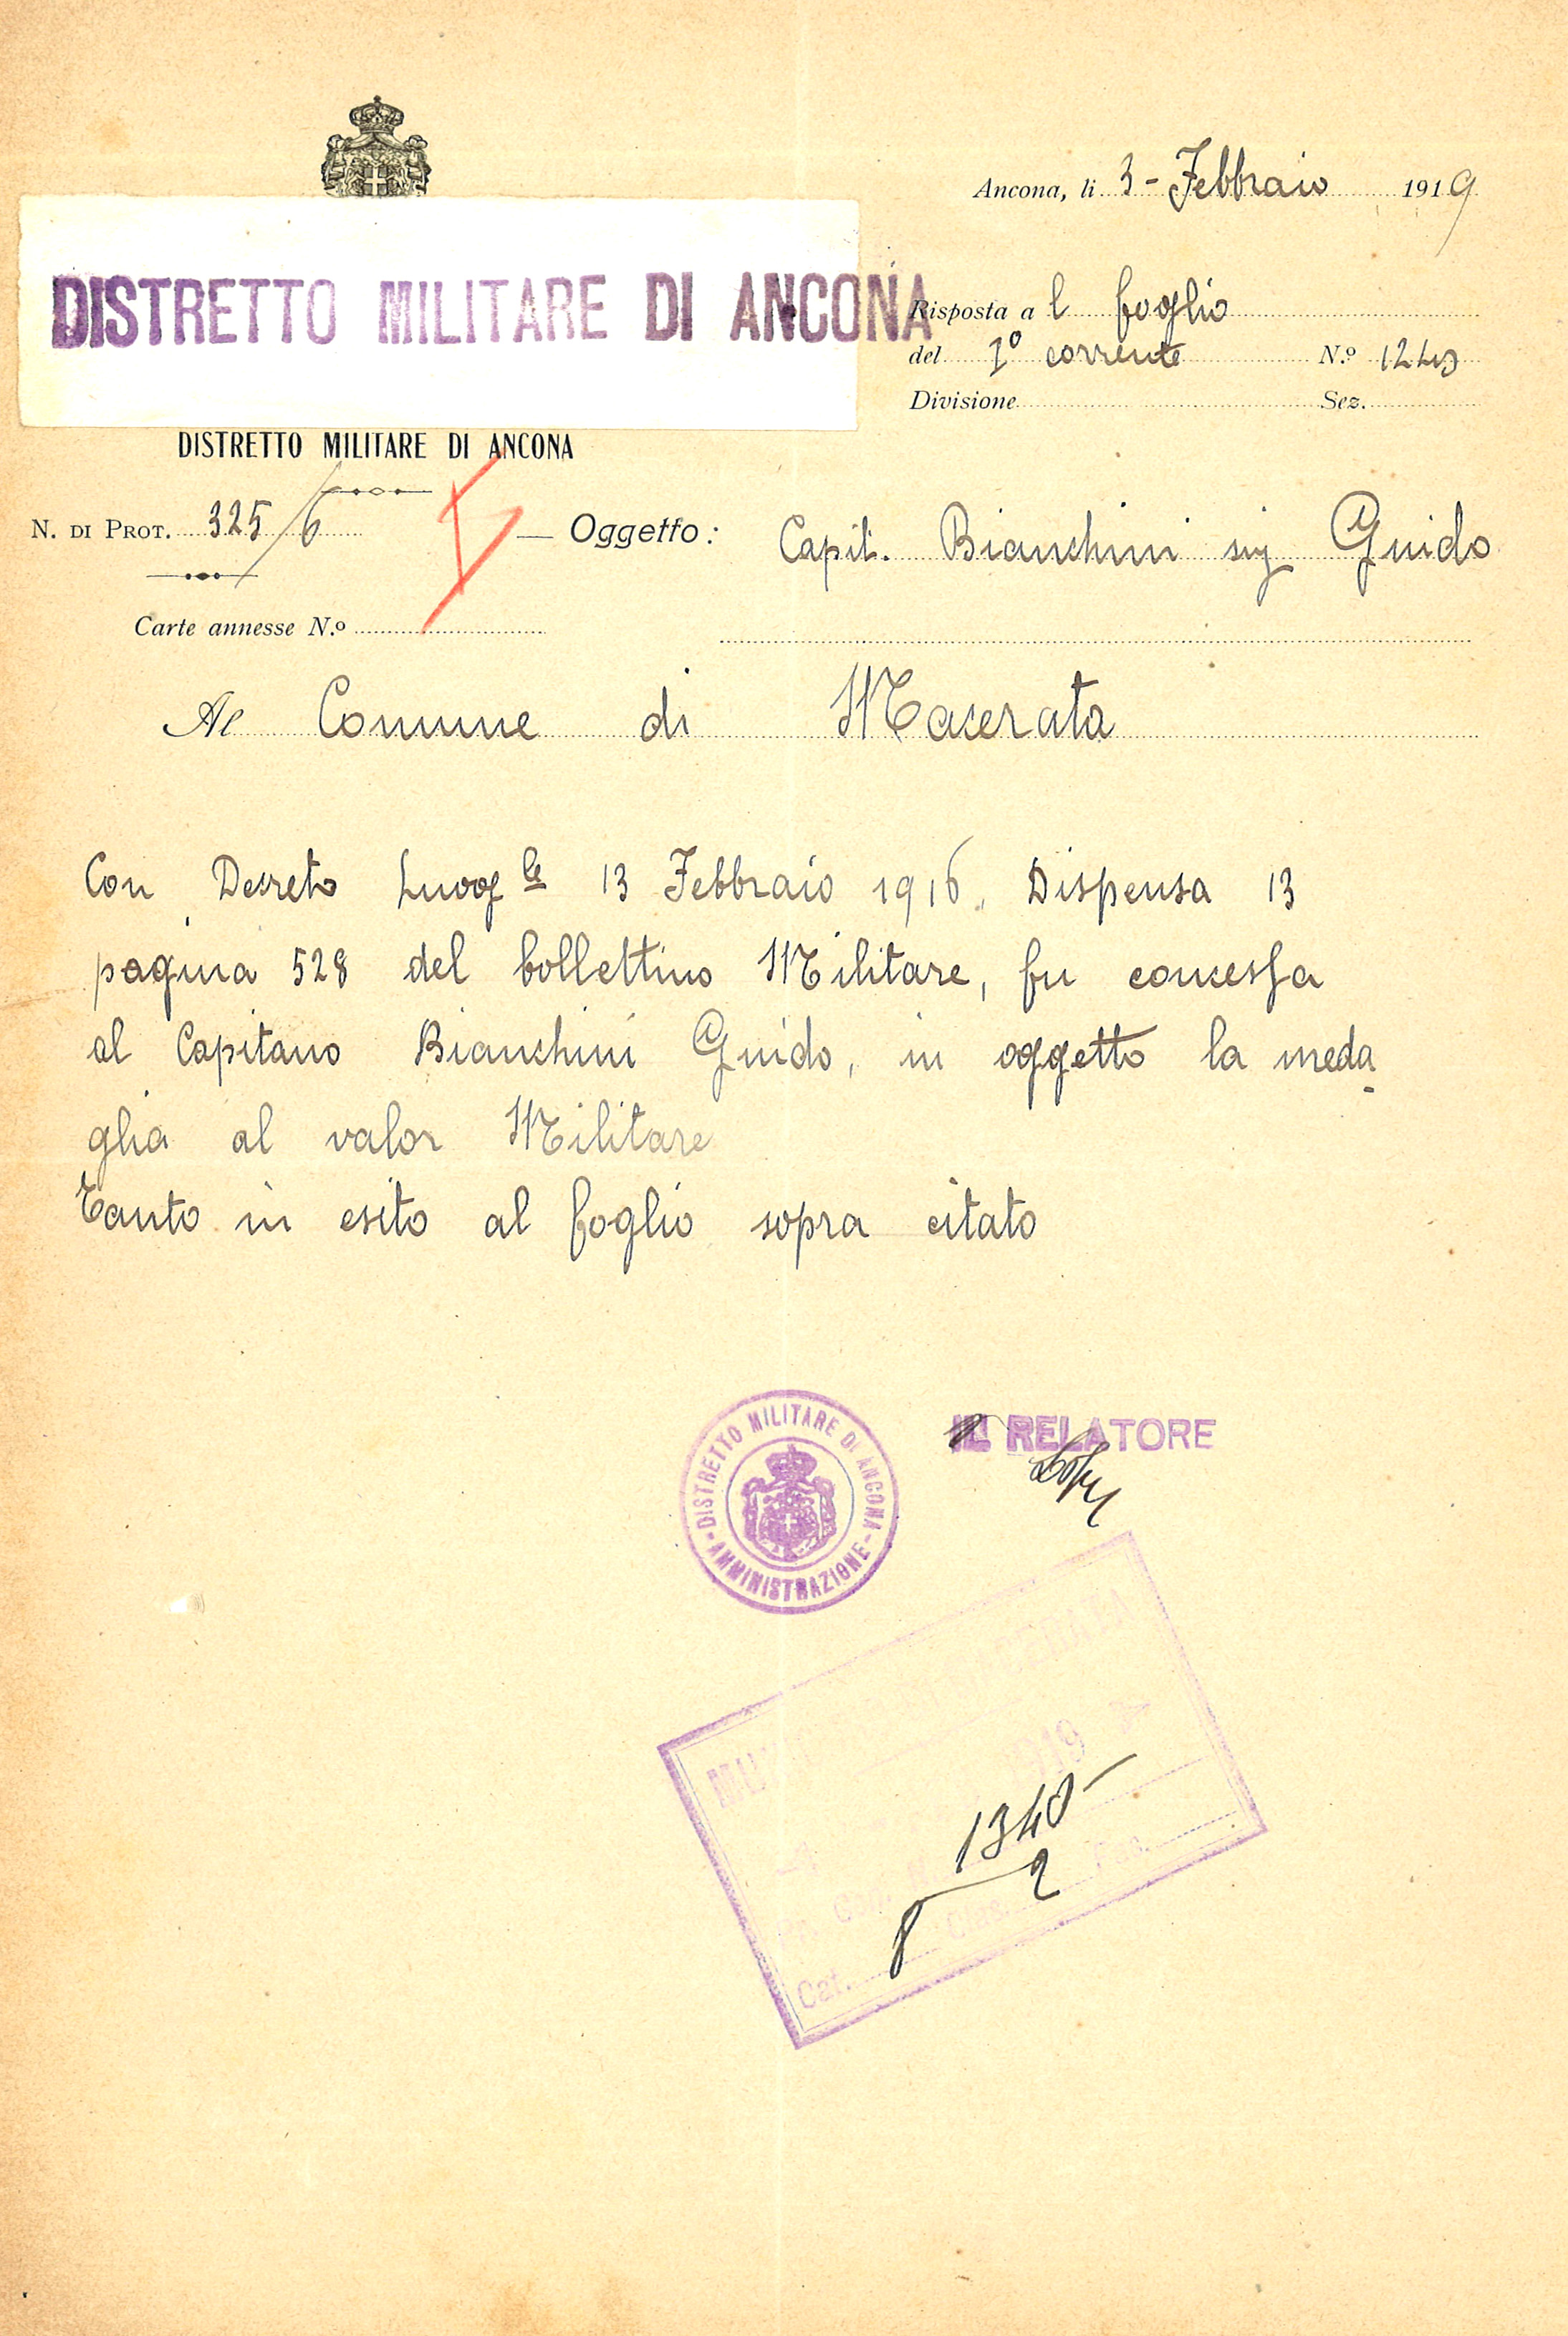 Ancona, li 3 - Febbraio 1919
DISTRETTO MILITARE DI ANCONA
Risposta a l foglio
del 1º corrente N.º 1243
Divisione Sez.
DISTRETTO MILITARE DI ANCONA
N. DI PROT. 325/6
Oggetto: Capit. Bianchini sig Guido
Carte annesse N.º
Al Comune di Macerata
Con Decreto Luogle 13 Febbraio 1916, Dispensa 13
pagina 528 del bollettino Militare, fu concessa
al Capitano Bianchini Guido, in oggetto la meda
glia al valor Militare
Tanto in esito al foglio sopra citato
DISTRETTO MILITARE DI ANCONA
- AMMINISTRAZIONE -
IL RELATORE
1919
1340
Cat. 8 Clas. 2 Fas.